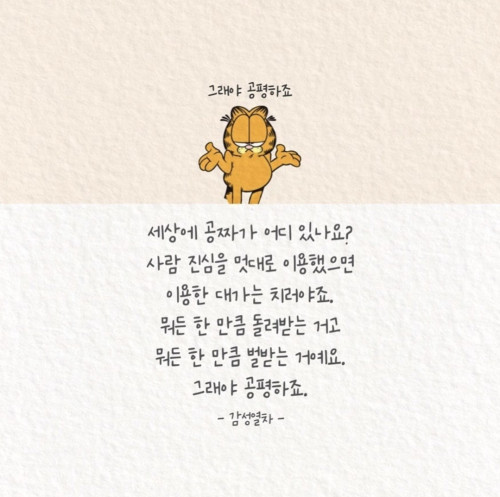 그래야 공평하죠
세상에 공짜가 어디 있나요?
사람 진심을 멋대로 이용했으면
이용한 대가는 치러야죠.
뭐든 한 만큼 돌려받는 거고
뭐든 한 만큼 벌받는 거예요.
그래야 공평하죠.
- 감성열차 -